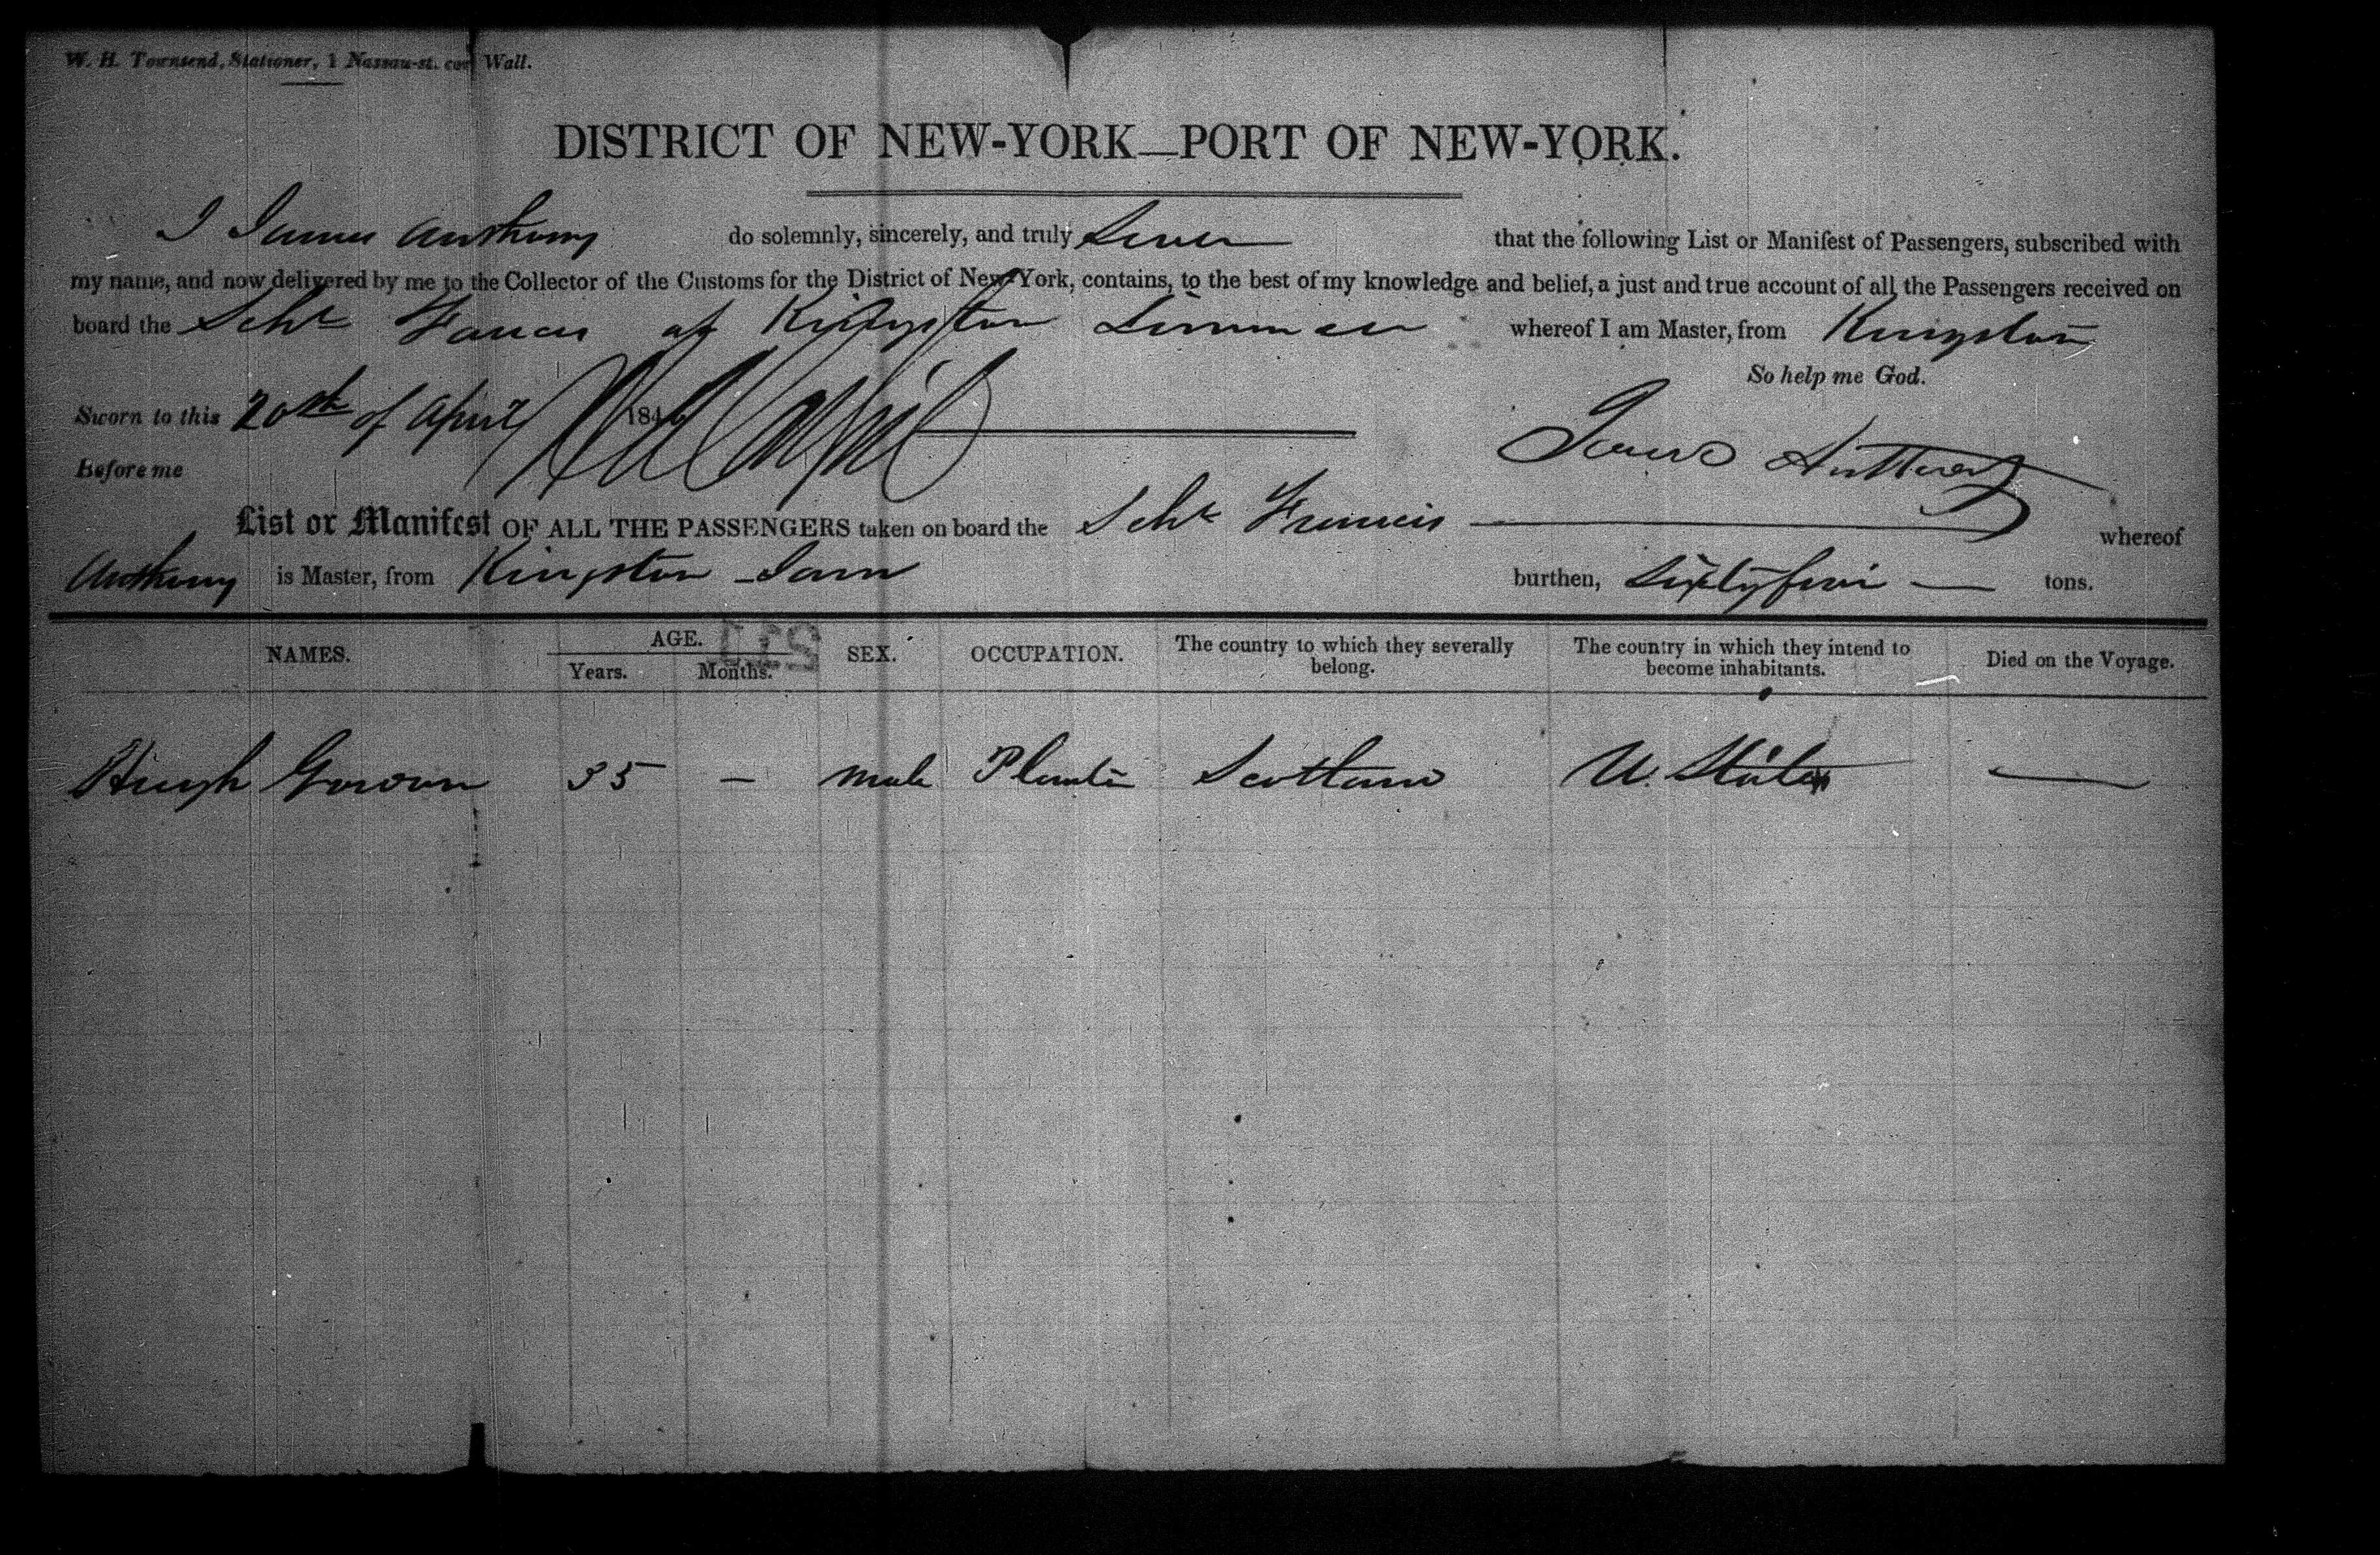 W. H. Townsend, Stationer, 1 Nassau-st. cor Wall.
DISTRICT OF NEW-YORK—PORT OF NEW-YORK.
I James Anthony do solemnly, sincerely, and truly Swear that the following List or Manifest of Passengers, subscribed with
my name, and now delivered by me to the Collector of the Customs for the District of New-York, contains, to the best of my knowledge and belief, a just and true account of all the Passengers received on
board the Schr of Kingston whereof I am Master, from Kingston
So help me God.
Sworn to this 20th of April 184
Before me James Anthony
List or Manifest OF ALL THE PASSENGERS taken on board the Schr Francis — whereof
Anthony is Master, from Kingston Jam burthen, — tons.
NAMES. AGE. SEX. OCCUPATION. The country to which they severally belong. The country in which they intend to become inhabitants. Died on the Voyage.
Years. Months.
Hugh 35 — male Planter Scotland U. States —